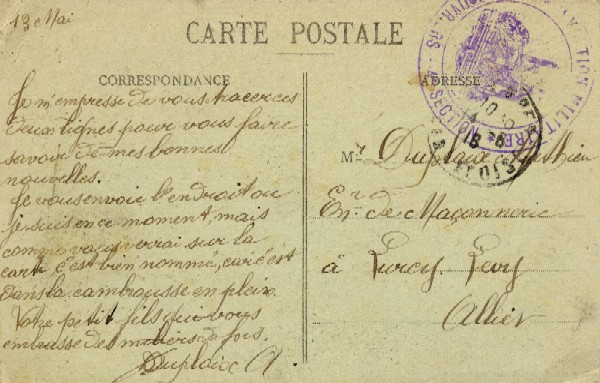 13 Mai
CARTE POSTALE
CORRESPONDANCE
ADRESSE
Je m'empresse de vous tracer ces
deux lignes pour vous faire
savoir de mes bonnes
nouvelles.
Je vous envoie l'endroit ou
je suis en ce moment, mais
comme vous verrai sur la
carte c'est bien nommé, car c'est
dans la cambrousse en plein.
Votre petit fils qui vous
embrasse de milliers de fois.
Duplaix A.
Mr Duplaix
En. de Maçonnerie
à Lurcy Levy
Allier
SECTION